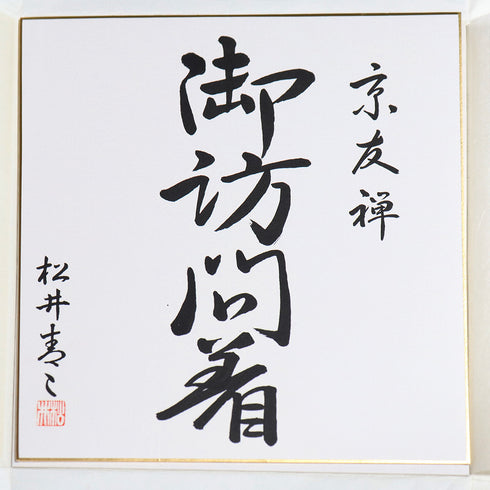 京友禅
御訪問着
松井青々